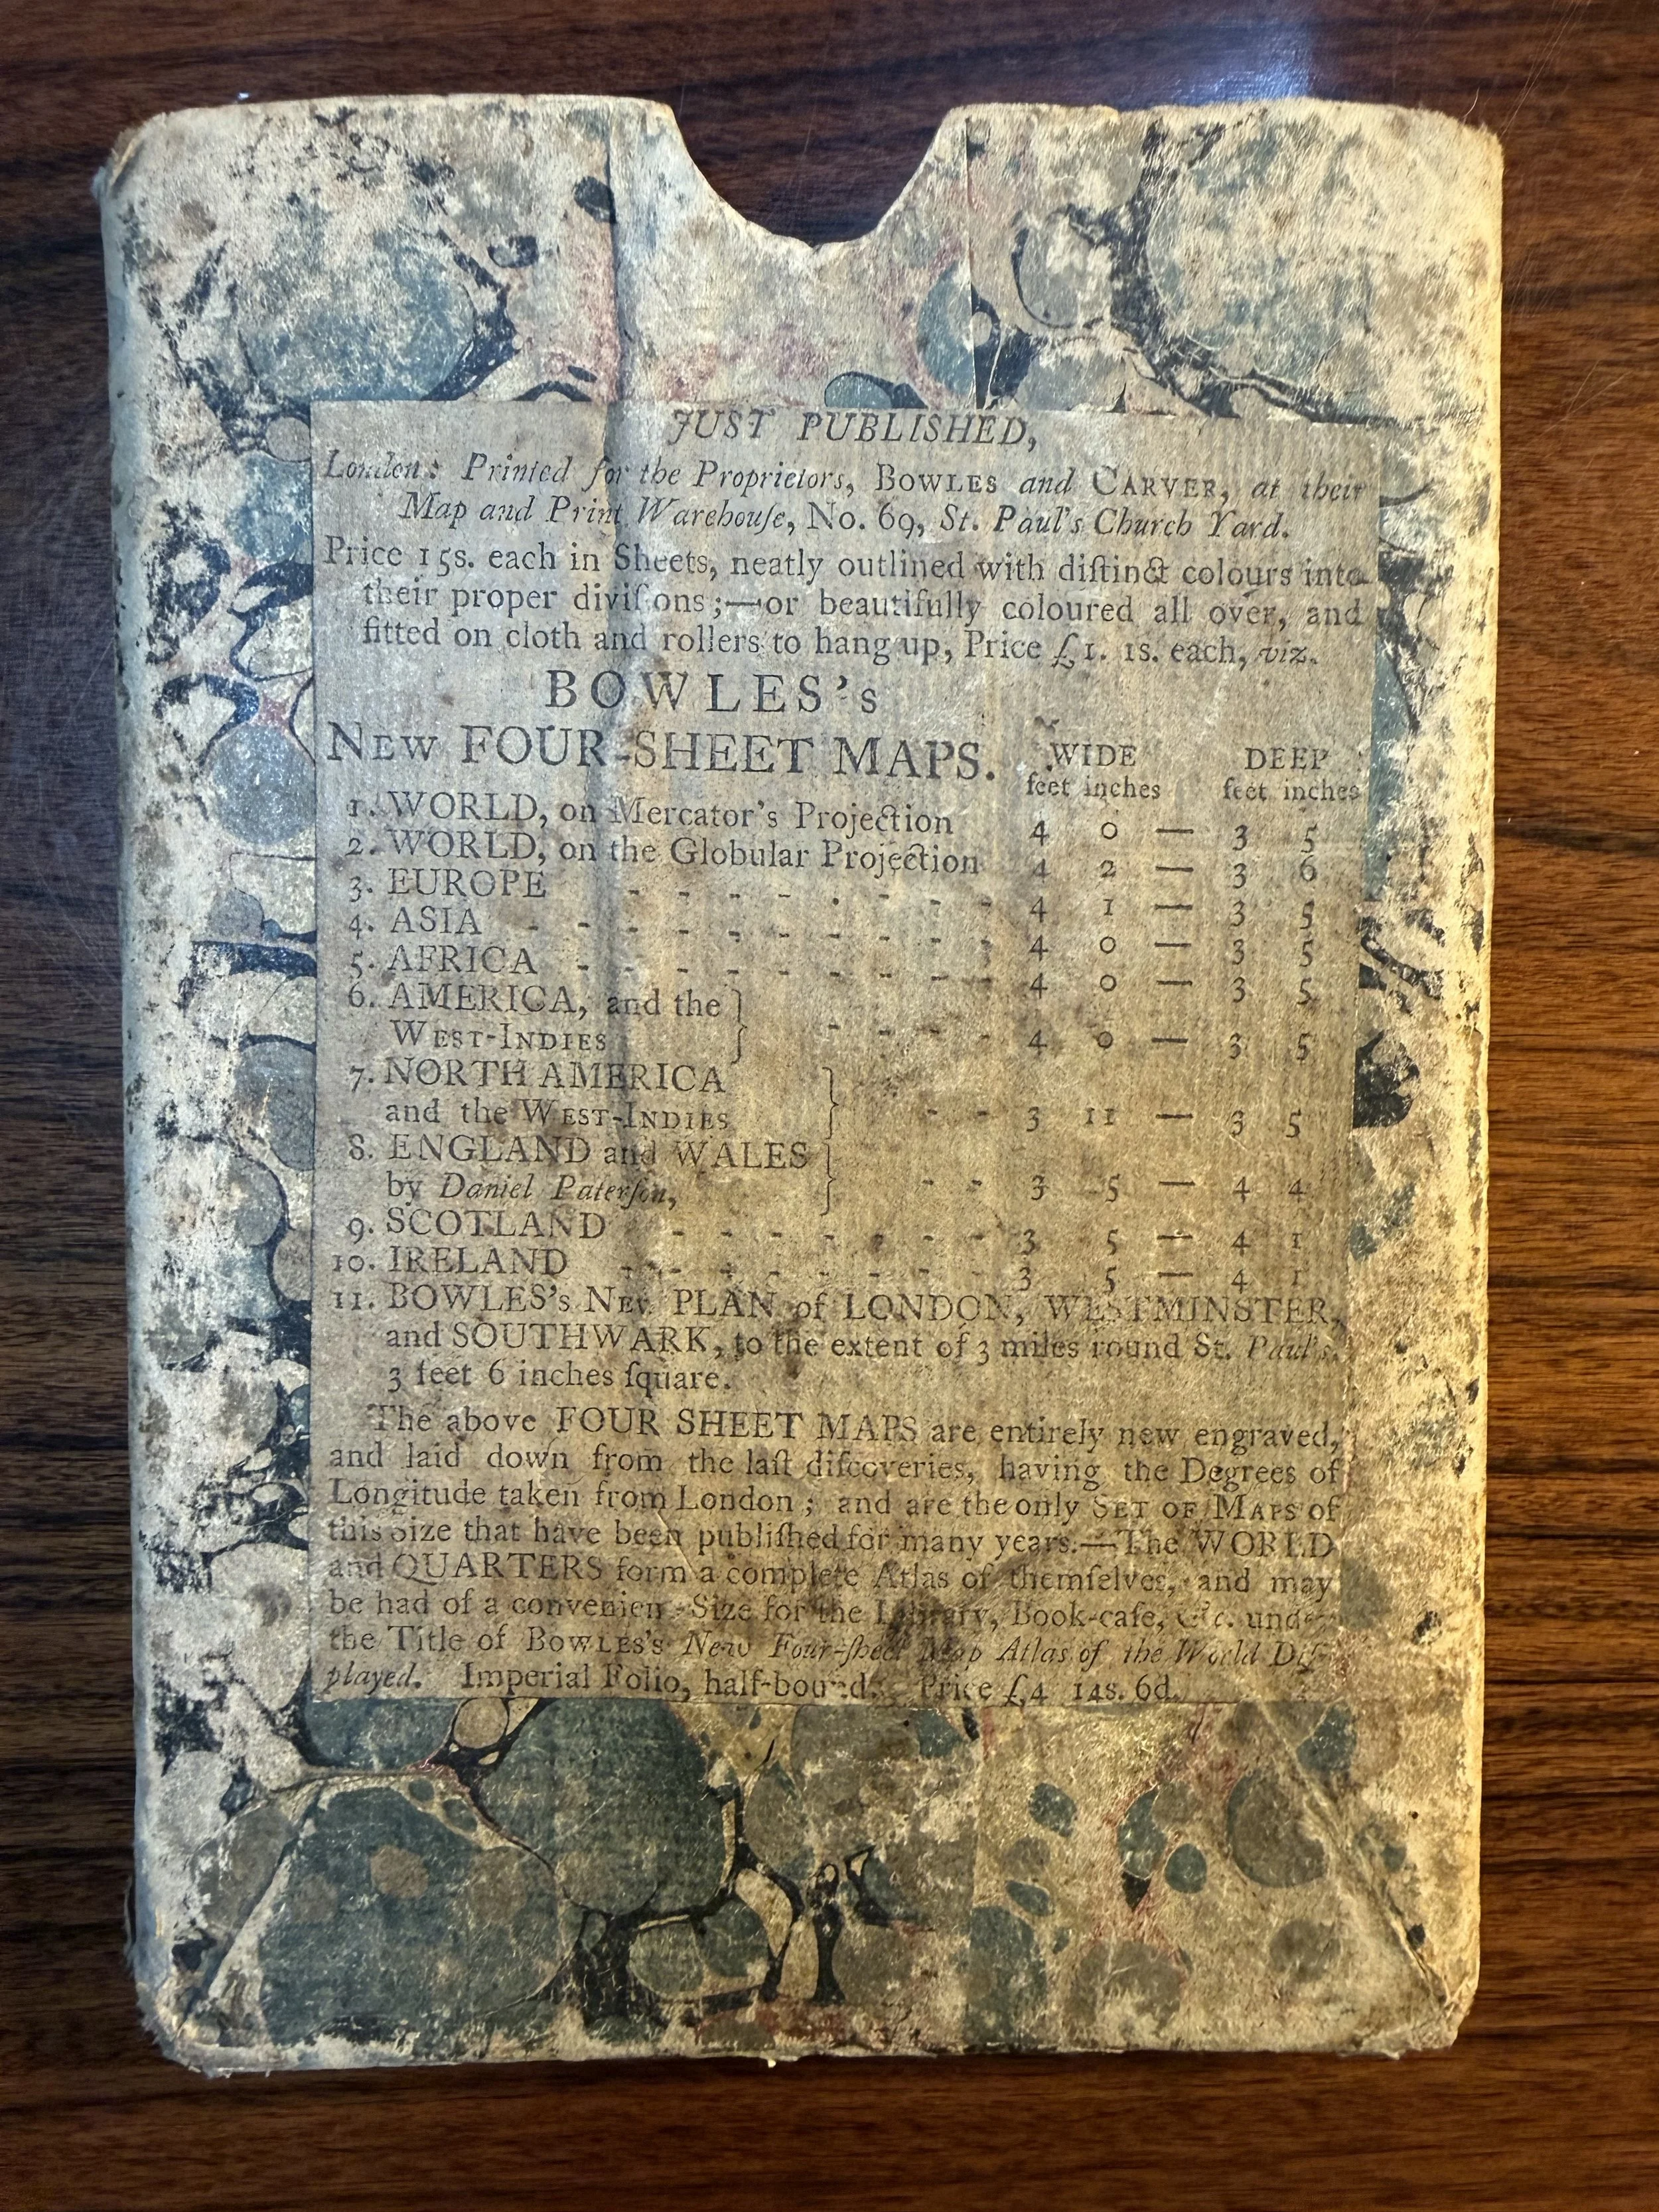 JUST PUBLISHED,
London: Printed for the Proprietors, BOWLES and CARVER, at their
Map and Print Warehouſe, No. 69, St. Paul's Church Yard.
Price 15s. each in Sheets, neatly outlined with diſtinct colours into
their proper diviſions;—or beautifully coloured all over, and
fitted on cloth and rollers to hang up, Price £1. 1s. each, viz.
BOWLES's
NEW FOUR-SHEET MAPS. WIDE DEEP
feet inches feet inches
1. WORLD, on Mercator's Projection 4 0 — 3 5
2. WORLD, on the Globular Projection 4 2 — 3 6
3. EUROPE - - - - - - - - 4 1 — 3 5
4. ASIA - - - - - - - - - - 4 0 — 3 5
5. AFRICA - - - - - - - - - 4 0 — 3 5
6. AMERICA, and the }
WEST-INDIES } - - - - 4 0 — 3 5
7. NORTH AMERICA }
and the WEST-INDIES } - - 3 11 — 3 5
8. ENGLAND and WALES }
by Daniel Paterſon, } - - 3 5 — 4 4
9. SCOTLAND - - - - - - - 3 5 — 4 1
10. IRELAND - - - - - - - - 3 5 — 4 1
11. BOWLES's NEW PLAN of LONDON, WESTMINSTER,
and SOUTHWARK, to the extent of 3 miles round St. Paul's.
3 feet 6 inches ſquare.
The above FOUR SHEET MAPS are entirely new engraved,
and laid down from the laſt diſcoveries, having the Degrees of
Longitude taken from London; and are the only SET OF MAPS of
this Size that have been publiſhed for many years.—The WORLD
and QUARTERS form a complete Atlas of themſelves, and may
be had of a convenient Size for the Library, Book-caſe, &c. under
the Title of BOWLES's New Four-ſheet Map Atlas of the World Diſ-
played. Imperial Folio, half-bound. Price £4 14s. 6d.